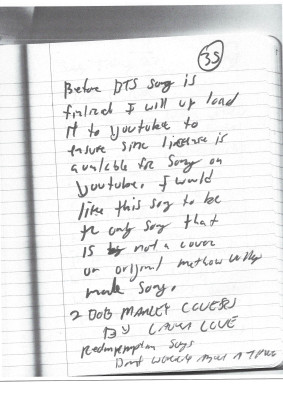 35
Before BTS song is
finlred I will up load
it to youtube to
ensure sinc license is
available for Song on
youtube. I would
like this sog to be
the only song that
IS not a cover
or original methow valley
made Song.
2 BOB MARLEY COVERS
BY LAURA LOVE
Redmpemption Songs
Dont WORRY